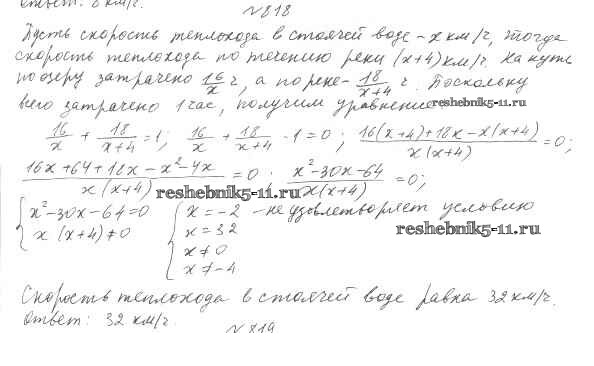 Ответ: 8 км/г.
№818
Пусть скорость теплохода в стоячей воде - x км/г, тогда
скорость теплохода по течению реки (x+4) км/г. На путь
по озеру затрачено 16/x г, а по реке - 18/(x+4) г. Поскольку
всего затрачено 1 час, получим уравнение
reshebnik5-11.ru
16/x + 18/(x+4) = 1; 16/x + 18/(x+4) - 1 = 0; (16(x+4)+18x-x(x+4))/(x(x+4)) = 0;
(16x+64+18x-x²-4x)/(x(x+4)) = 0; (x²-30x-64)/(x(x+4)) = 0;
reshebnik5-11.ru
{ x²-30x-64=0 { x=-2 - не удовлетворяет условию
x(x+4)≠0 x=32
reshebnik5-11.ru
x≠0
x≠-4
Скорость теплохода в стоячей воде равна 32 км/г.
Ответ: 32 км/г.
№819